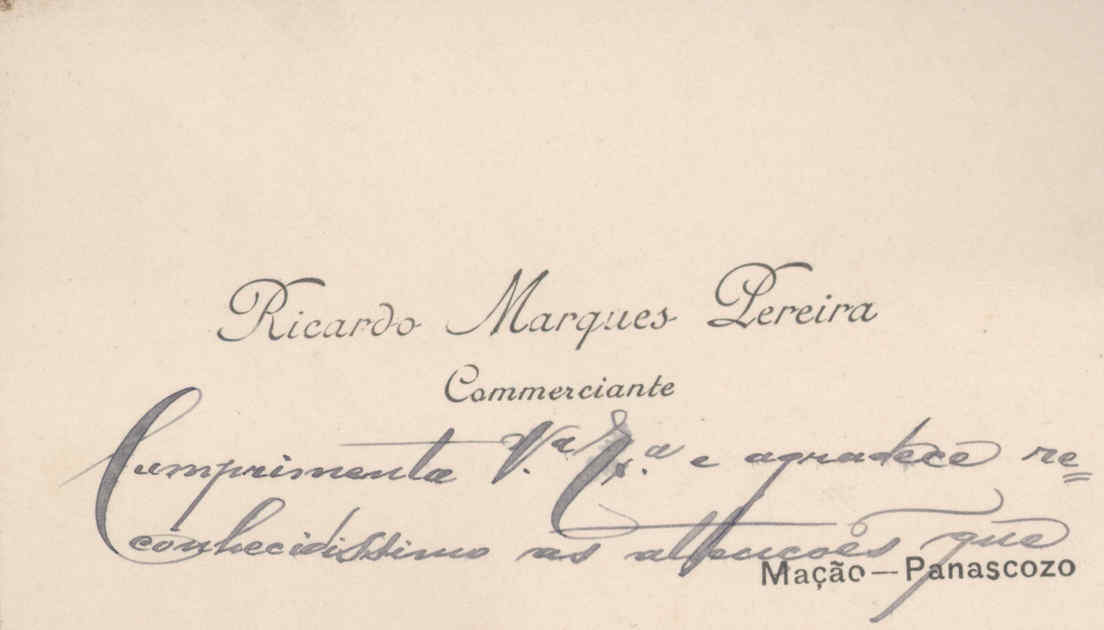 Ricardo Marques Pereira
Commerciante
Cumprimenta V.ª Ex.ª e agradece re=
conhecidissimo as attenções que
Mação — Panascozo